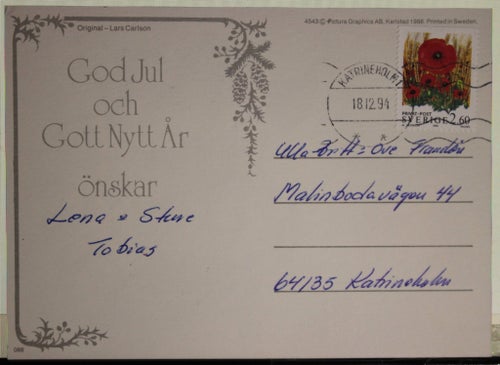 Original – Lars Carlson
4543 © Pictura Graphics AB, Karlstad 1986 Printed in Sweden.
God Jul
och
Gott Nytt År
önskar
Lena & Sture
Tobias
KATRINEHOLM
18.12.94
SVERIGE 2.60
Ulla Britt o Ove Frandén
Malmbodavägen 44
64135 Katrineholm